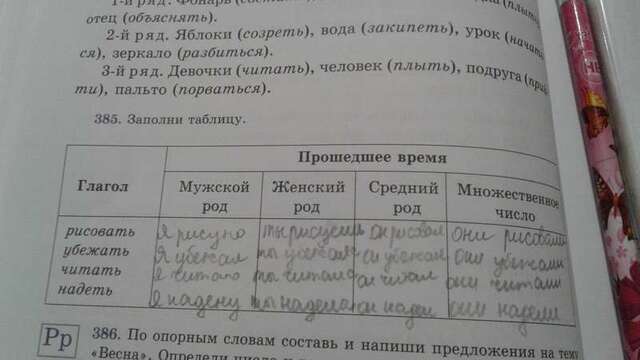 отец (объяснять).
2-й ряд. Яблоки (созреть), вода (закипеть), урок (начать
ся), зеркало (разбиться).
3-й ряд. Девочки (читать), человек (плыть), подруга (при
ти), пальто (порваться).
385. Заполни таблицу.
Глагол
Прошедшее время
Мужской род
Женский род
Средний род
Множественное число
рисовать
я рисую
ты рисуеш
он рисовал
они рисовали
убежать
я убежал
ты убежала
он убежал
они убежали
читать
я читаю
ты читала
он читал
они читали
надеть
я надену
ты надела
он надел
они надели
Рр
386. По опорным словам составь и напиши предложения на тему
«Весна». Определи число и